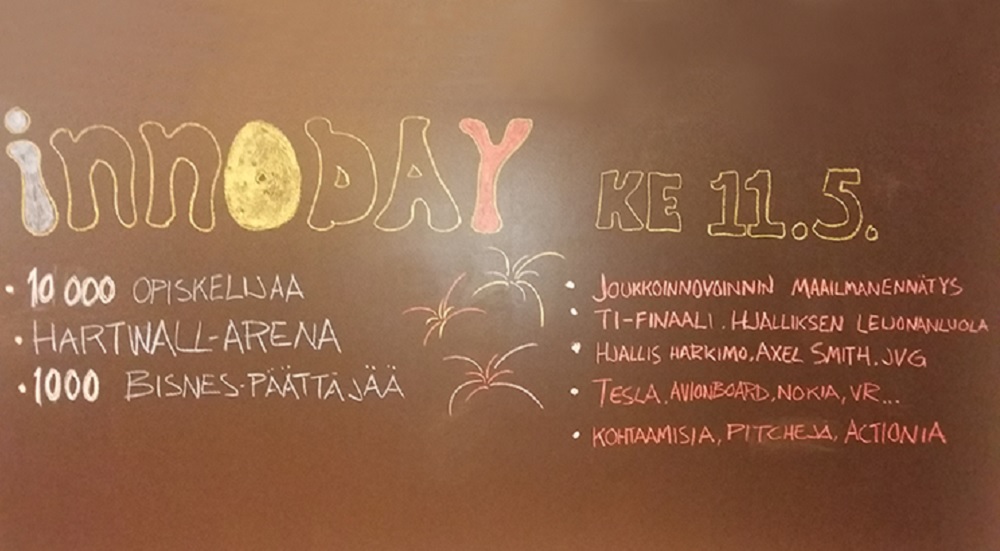 innoDAY
KE 11.5.
• 10 000 OPISKELIJAA
• HARTWALL-ARENA
• 1000 BISNES-PÄÄTTÄJÄÄ
• JOUKKOINNOVOINNIN MAAILMANENNÄTYS
• TI-FINAALI. HJALLIKSEN LEIJONANLUOLA
• HJALLIS HARKIMO, AXEL SMITH. JVG
• TESLA, AVIONBOARD, NOKIA, VR...
• KOHTAAMISIA, PITCHEJÄ, ACTIONIA